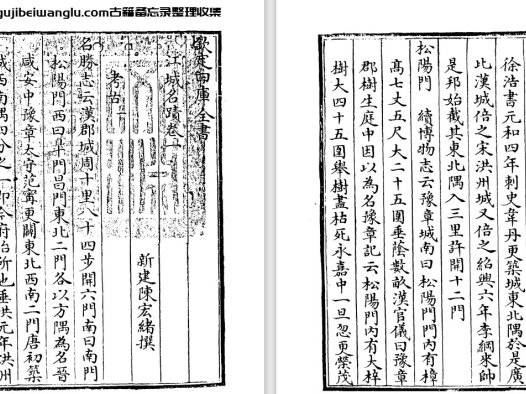 gujibeiwanglu.com古籍备忘录整理收集
欽定四庫全書
江城名蹟卷一
新建陳宏緒撰
考古一
名勝志云漢郡城周十里八十四步開六門南曰南門
松陽門西曰臯門昌門東北二門各以方隅為名晉
咸安中豫章太守范甯更闢東北西南二門唐初築
城西南隅四分之一即今府治所也垂拱元年洪州
徐浩書元和四年刺史韋丹更築城東北隅於是廣
比漢城倍之宋洪州城又倍之紹興六年李綱來帥
是邦始截其東北隅入三里許開十二門
松陽門 續博物志云豫章城南曰松陽門門内有樟
髙七丈五尺大二十五圍垂蔭數畝漢官儀曰豫章
郡樹生庭中因以為名豫章記云松陽門内有大梓
樹大四十五圍舉樹盡枯死永嘉中一旦忽更榮茂